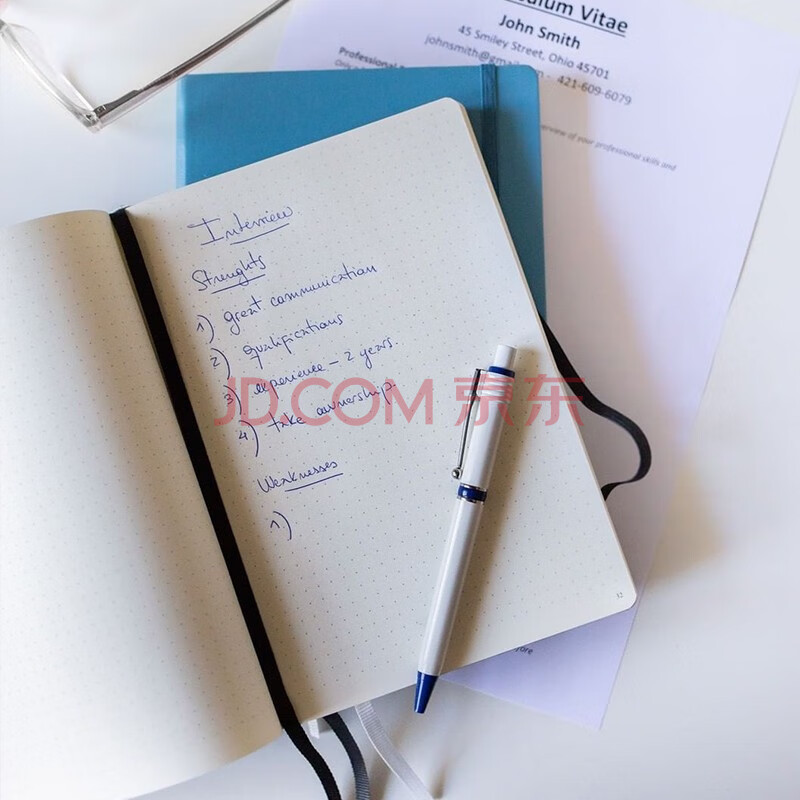 Curriculum Vitae
John Smith
45 Smiley Street, Ohio 45701
421-609-6079
Professional
overview of your professional skills and
Interview
Strenghts
1) great communication
2) qualifications
3) experience - 2 years.
4) take ownership.
Weaknesses
1)
JD.COM 京东
32